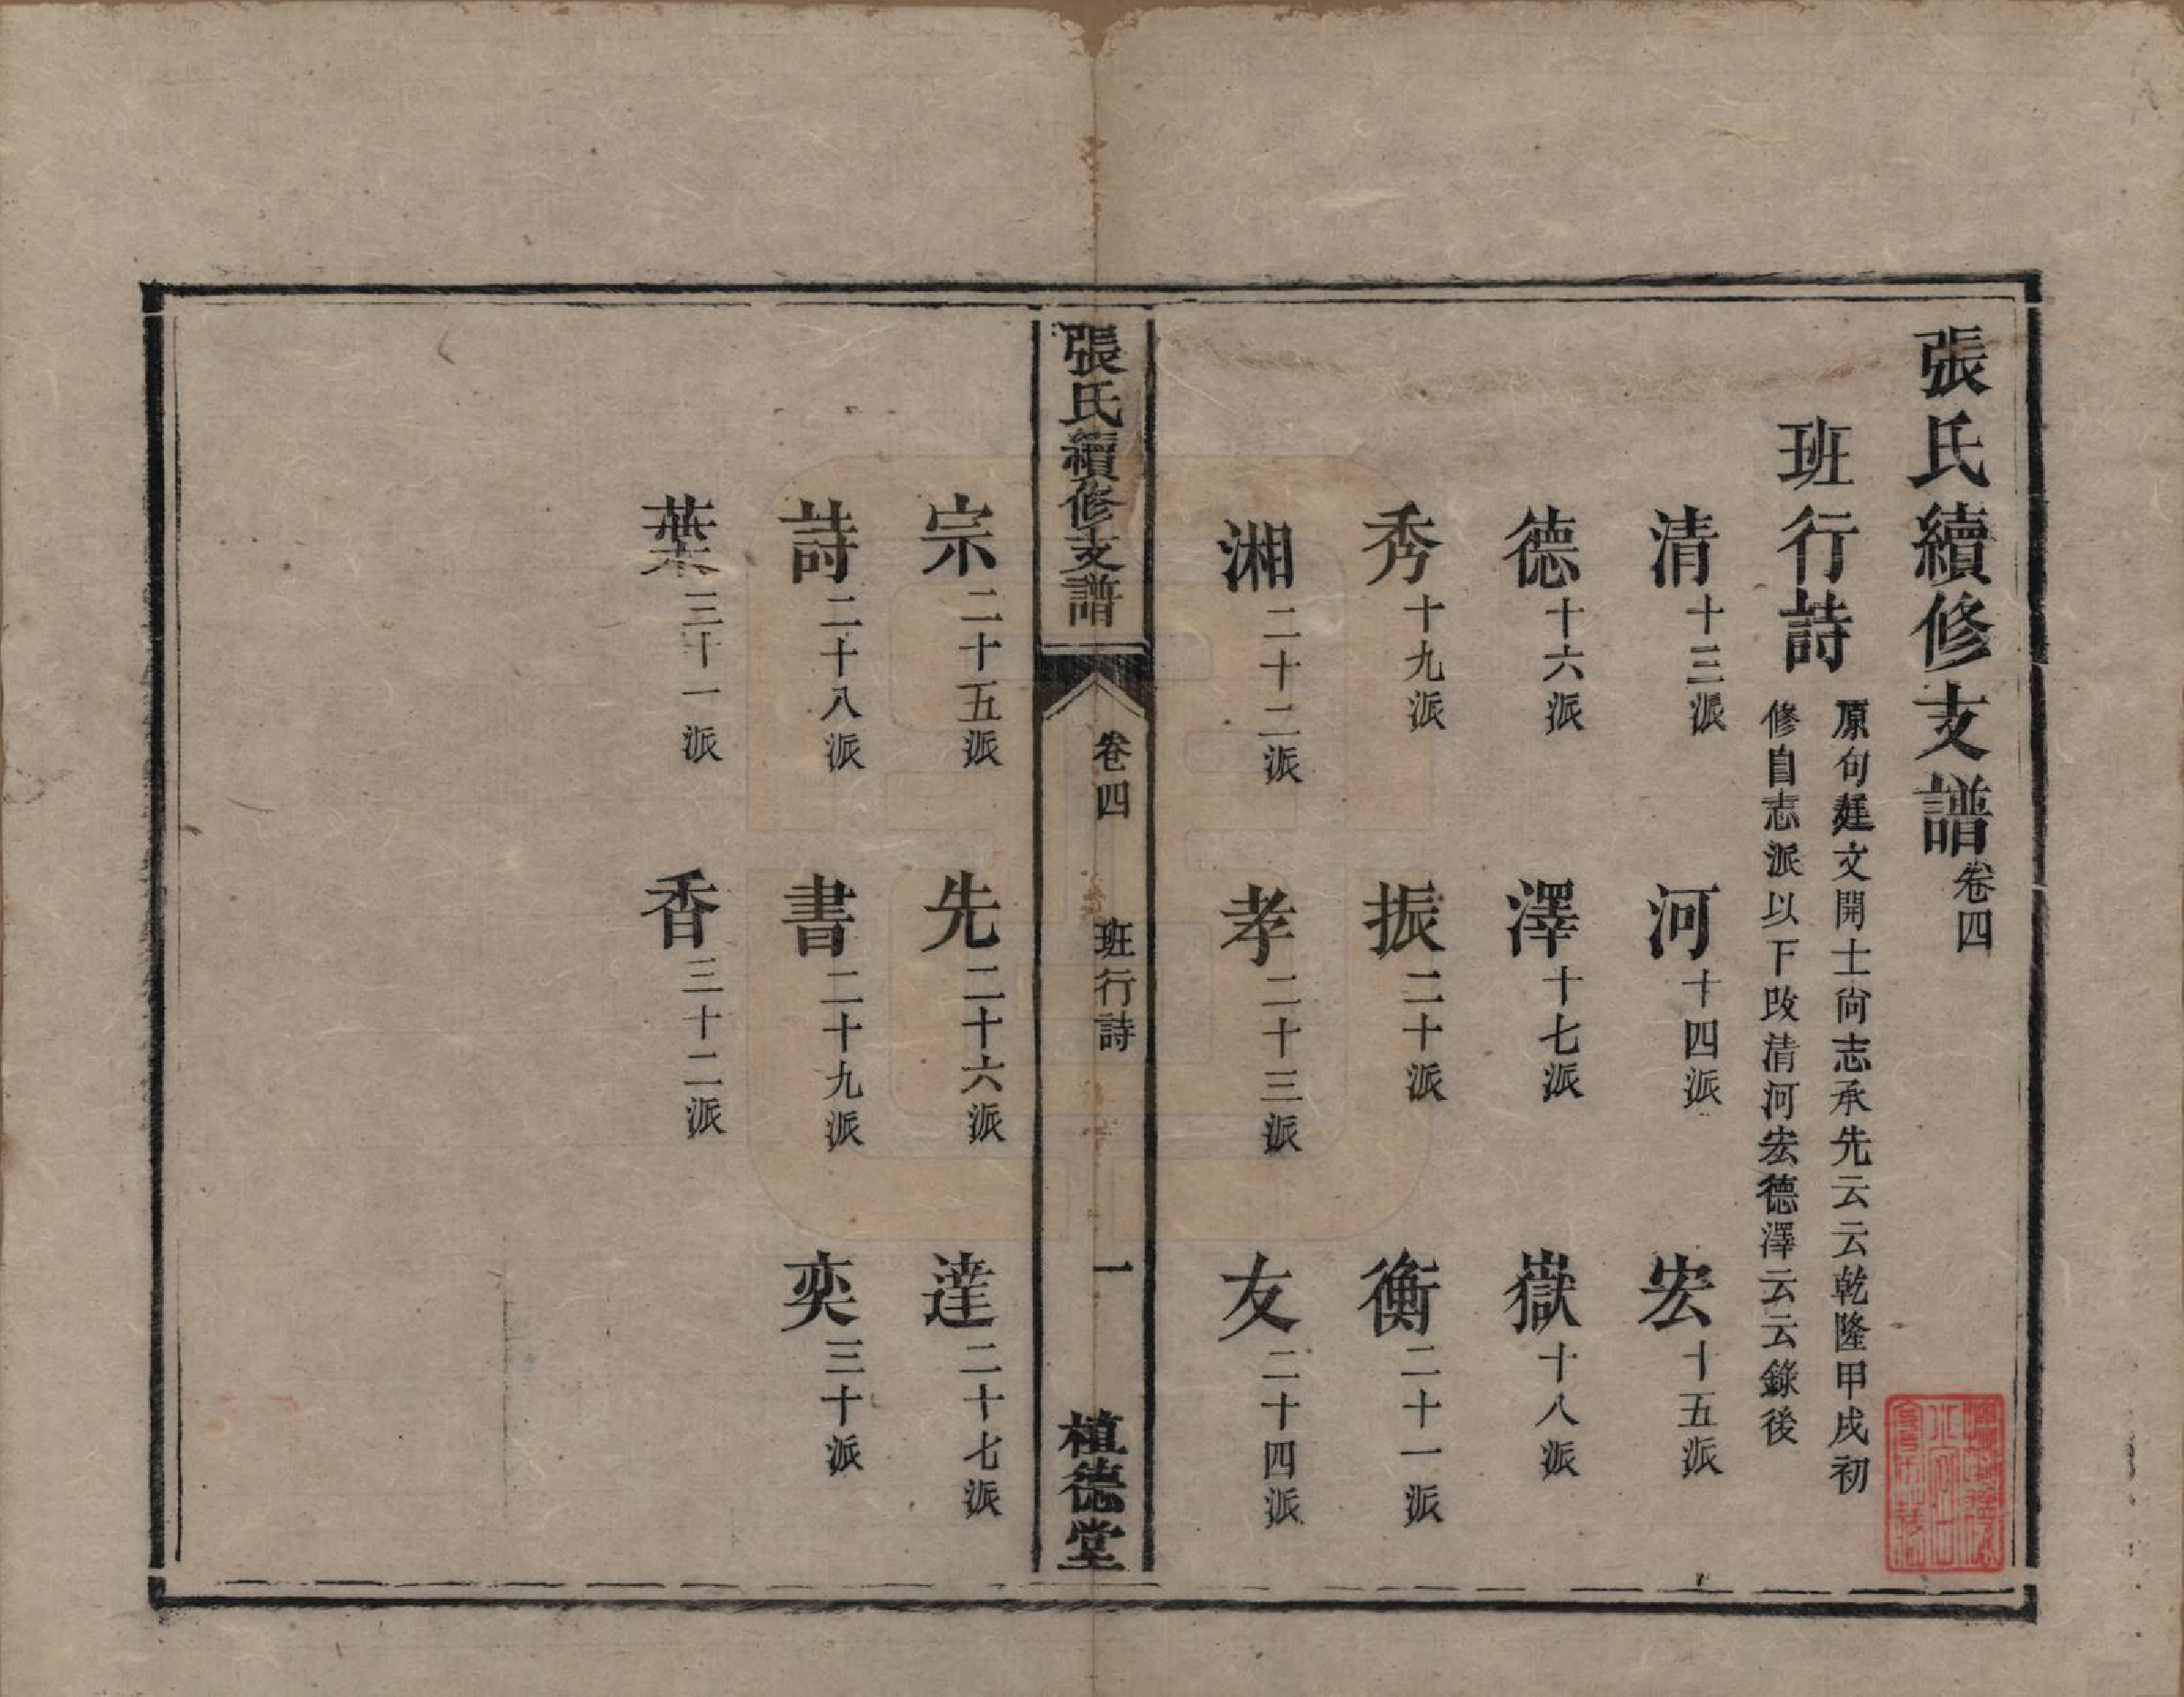 張氏續修支譜卷四
班行詩
原句廷文開士尙志承先云云乾隆甲戌初
修自志派以下改清河宏德澤云云錄後
清十三派　河十四派　宏十五派
德十六派　澤十七派　嶽十八派
秀十九派　振二十派　衡二十一派
湘二十二派　孝二十三派　友二十四派
張氏續修支譜　卷四　班行詩　一　植德堂
宗二十五派　先二十六派　達二十七派
詩二十八派　書二十九派　奕三十派
葉三十一派　香三十二派